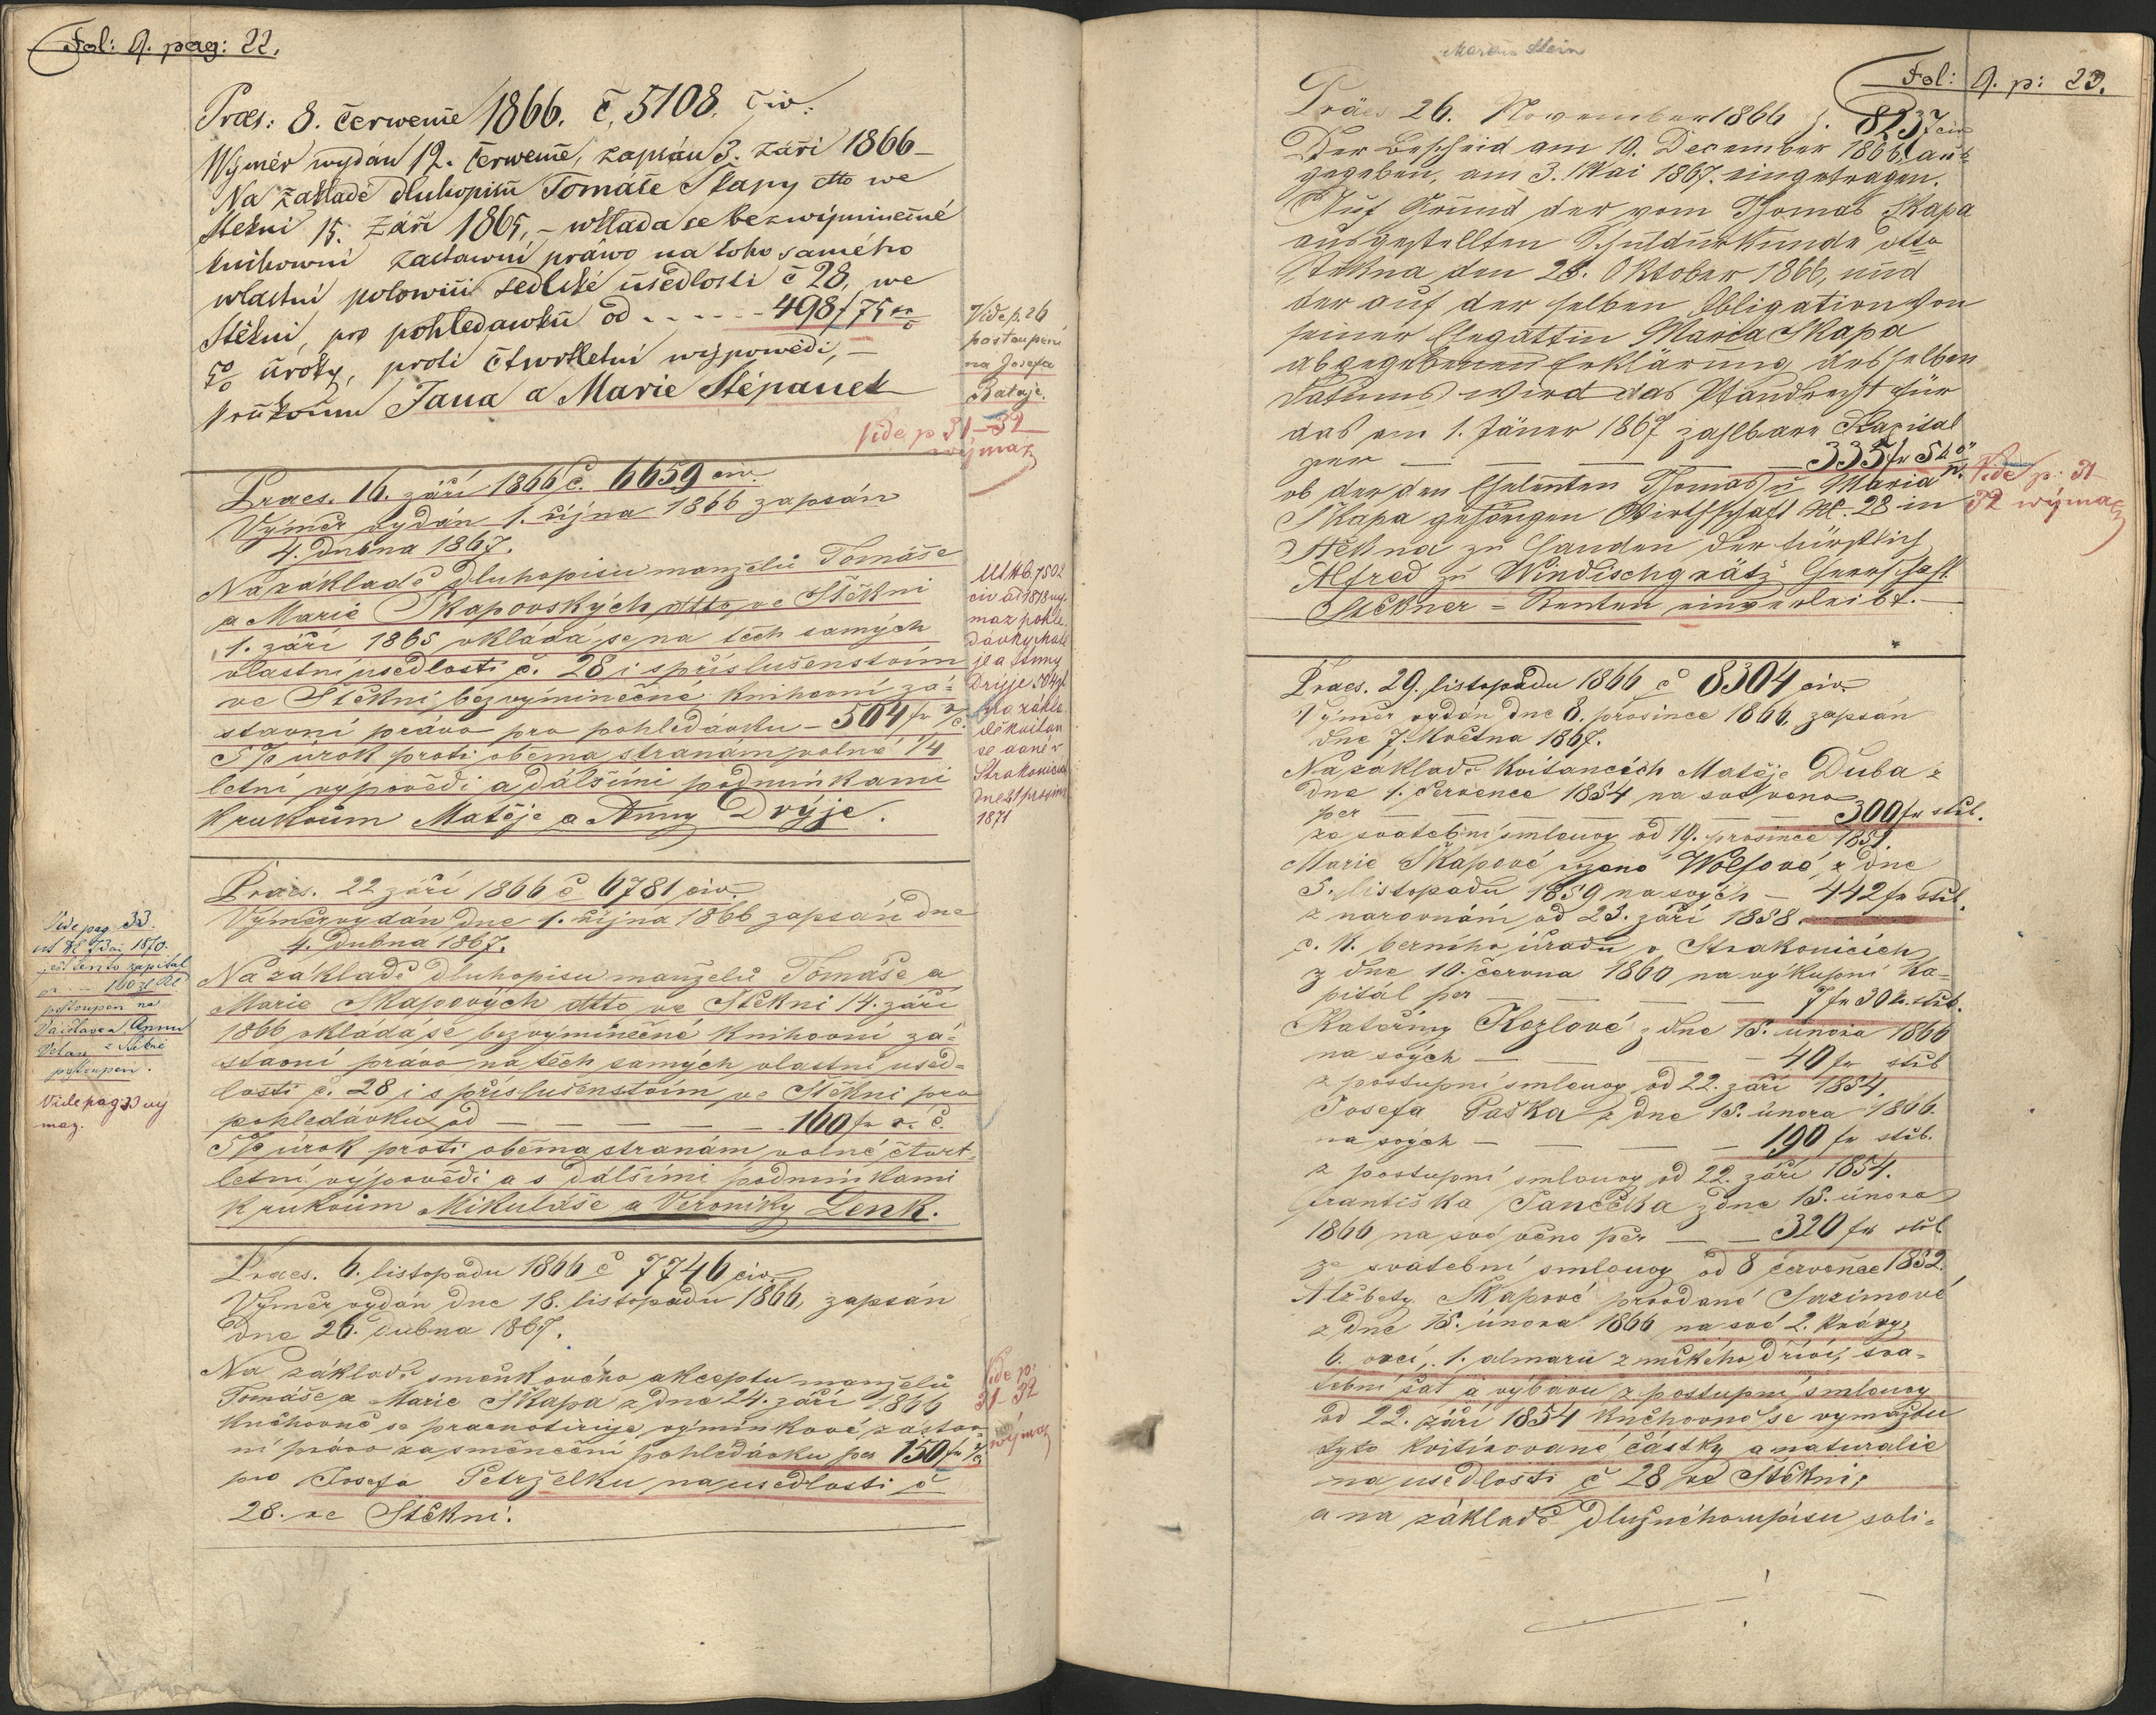 Fol: 9. pag: 22.
Praes: 8. červenně 1866. č. 5108. civ:
Wýměr wydán 12. červenně, zapsán 3. září 1866 –
Na základě dluhopisu Tomáše Skapy dtto we
Štěkni 15. září 1865, – wkládá se bezwýminečné
knihowní zástawní práwo na toho samého
wlastní polowici sedlské usedlosti č 28, we
Štěkni, pro pohledáwku od - - - - - 498 f 75 xr
5% úroky, proti čtwrtletní wýpowědi, –
k rukoum Jana a Marie Štěpanek
Vide p. 26
postoupení
na Josefa
Bataje.
Vide p 31–32
výmaz
Praes. 16. září 1866 č. 6659 civ.
Výměr vydán 1. října 1866 zapsán
4. dubna 1867.
Na základě dluhopisu manželů Tomáše
a Marie Skapovských dtto ve Štěkni
1. září 1865 vkládá se na těch samých
vlastní usedlosti č. 28 i s příslušenstvím
ve Štěkni bezvýminečné knihovní zá=
stavní právo pro pohledávku – 504 fr r/č.
5% úrok proti oběma stranám volné 1/4
letní výpovědi a dálšími podmínkami
k rukoum Matěje a Anny Drýje.
Ut Hb. 7502
civ ad 1878 vý-
maz pohle
dávky Matě
je a Anny
Drýje 504 zl
na zákla
dě kvitan
se dané v
Strakonicích
dne 21 prosince
1871
Praes. 22 září 1866 č 6781 civ.
Výměr vydán dne 1. října 1866 zapsán dne
4. dubna 1867.
Na základě dluhopisu manželů Tomáše a
Marie Skapových dtto ve Štěkni 14. září
1866 vkládá se bezvýminečné knihovní zá=
stavní právo na těch samých vlastní used=
losti č. 28 i s příslušenstvím ve Štěkni pro
pohledávku od – – – – – 160 fr r. č.
5% úrok proti oběma stranám volné čtvrt=
letní výpovědi a s dálšími podmínkami
k rukoum Mikuláše a Veroniky Zenk.
Vide pag 33.
1870.
jest tento kapitál
160 zl
postoupen na
Václava a Annu
postoupen.
Vide pag 33 vý
maz.
Praes. 6. listopadu 1866 č 7746 civ.
Výměr vydán dne 18. listopadu 1866, zapsán
dne 26. dubna 1867.
Na základě směnkového akceptu manželů
Tomáše a Marie Skapa z dne 24. září 1866
knihovně se praenotiruje výmínkové zástav
ní právo za směneční pohledávku per 150 fr r/č
pro Josefa Petrželku na usedlosti č
28. ve Štěkni.
Vide p:
31–32
výmaz
Fol: 9. p: 23.
Präs 26. November 1866 z. 8237 civ
Der Bescheid am 10. December 1866, aus=
gegeben, am 3. Mai 1867. eingetragen.
Auf Grund der vom Thomas Skapa
ausgestellten Schuldurkunde dtto
Stěkna den 28. Oktober 1866, und
der auf der selben Obligation von
seiner Ehegattin Maria Skapa
abgegebenen Erklärung desselben
Datums wird das Pfandrecht für
das am 1. Jäner 1867 zahlbare Kapital
per – – – – 335 fr 54 ö
ob der den Eheleuten Thomas u Maria
Skapa gehörigen Wirthschaft N. 28 in
Stěkna zu Handen der fürstlich
Alfred zu Windischgrätz Herrschaft
Stěkner = Renten einverleibt. –
Vide p: 31
32 výmaz
Praes. 29. listopadu 1866 č 8304 civ.
Výměr vydán dne 8. prosince 1866, zapsán
dne 7. května 1867.
Na základě kvitancích Matěje Duba z
dne 1. července 1854 na své věno
per – – – – 300 fr stříb.
ze svatební smlouvy od 10. prosince 1851.
Marie Skapové vzené Wolfové, z dne
5. listopadu 1859 na svých – 442 fr stříb.
z narovnání od 23. září 1858.
c. k. berního úřadu v Strakonicích
z dne 10. června 1860 na výkupní ka=
pitál per – – – 7 fr 30 k. stříb.
Kateřiny Kozlové z dne 15. února 1866
na svých – – – – 40 fr stříb
z postupní smlouvy od 22. září 1854.
Josefa Paška z dne 15. února 1866.
na svých – – – 190 fr stříb.
z postupní smlouvy od 22. září 1854.
Františka Janečka z dne 15. února
1866 na své věno per – – 320 fr stříb
ze svatební smlouvy od 8 července 1852.
Alžbety Skapové provdané
z dne 15. února 1866 na své 2. krávy,
6. ovcí, 1. almaru z měkého dříví, sva=
tební šat a výbavu z postupní smlouvy
od 22. září 1854 knihovně se vymažou
tyto kvitirované částky a naturalie
na usedlosti č 28 ve Štěkni,
a na základě dlužného úpisu soli=